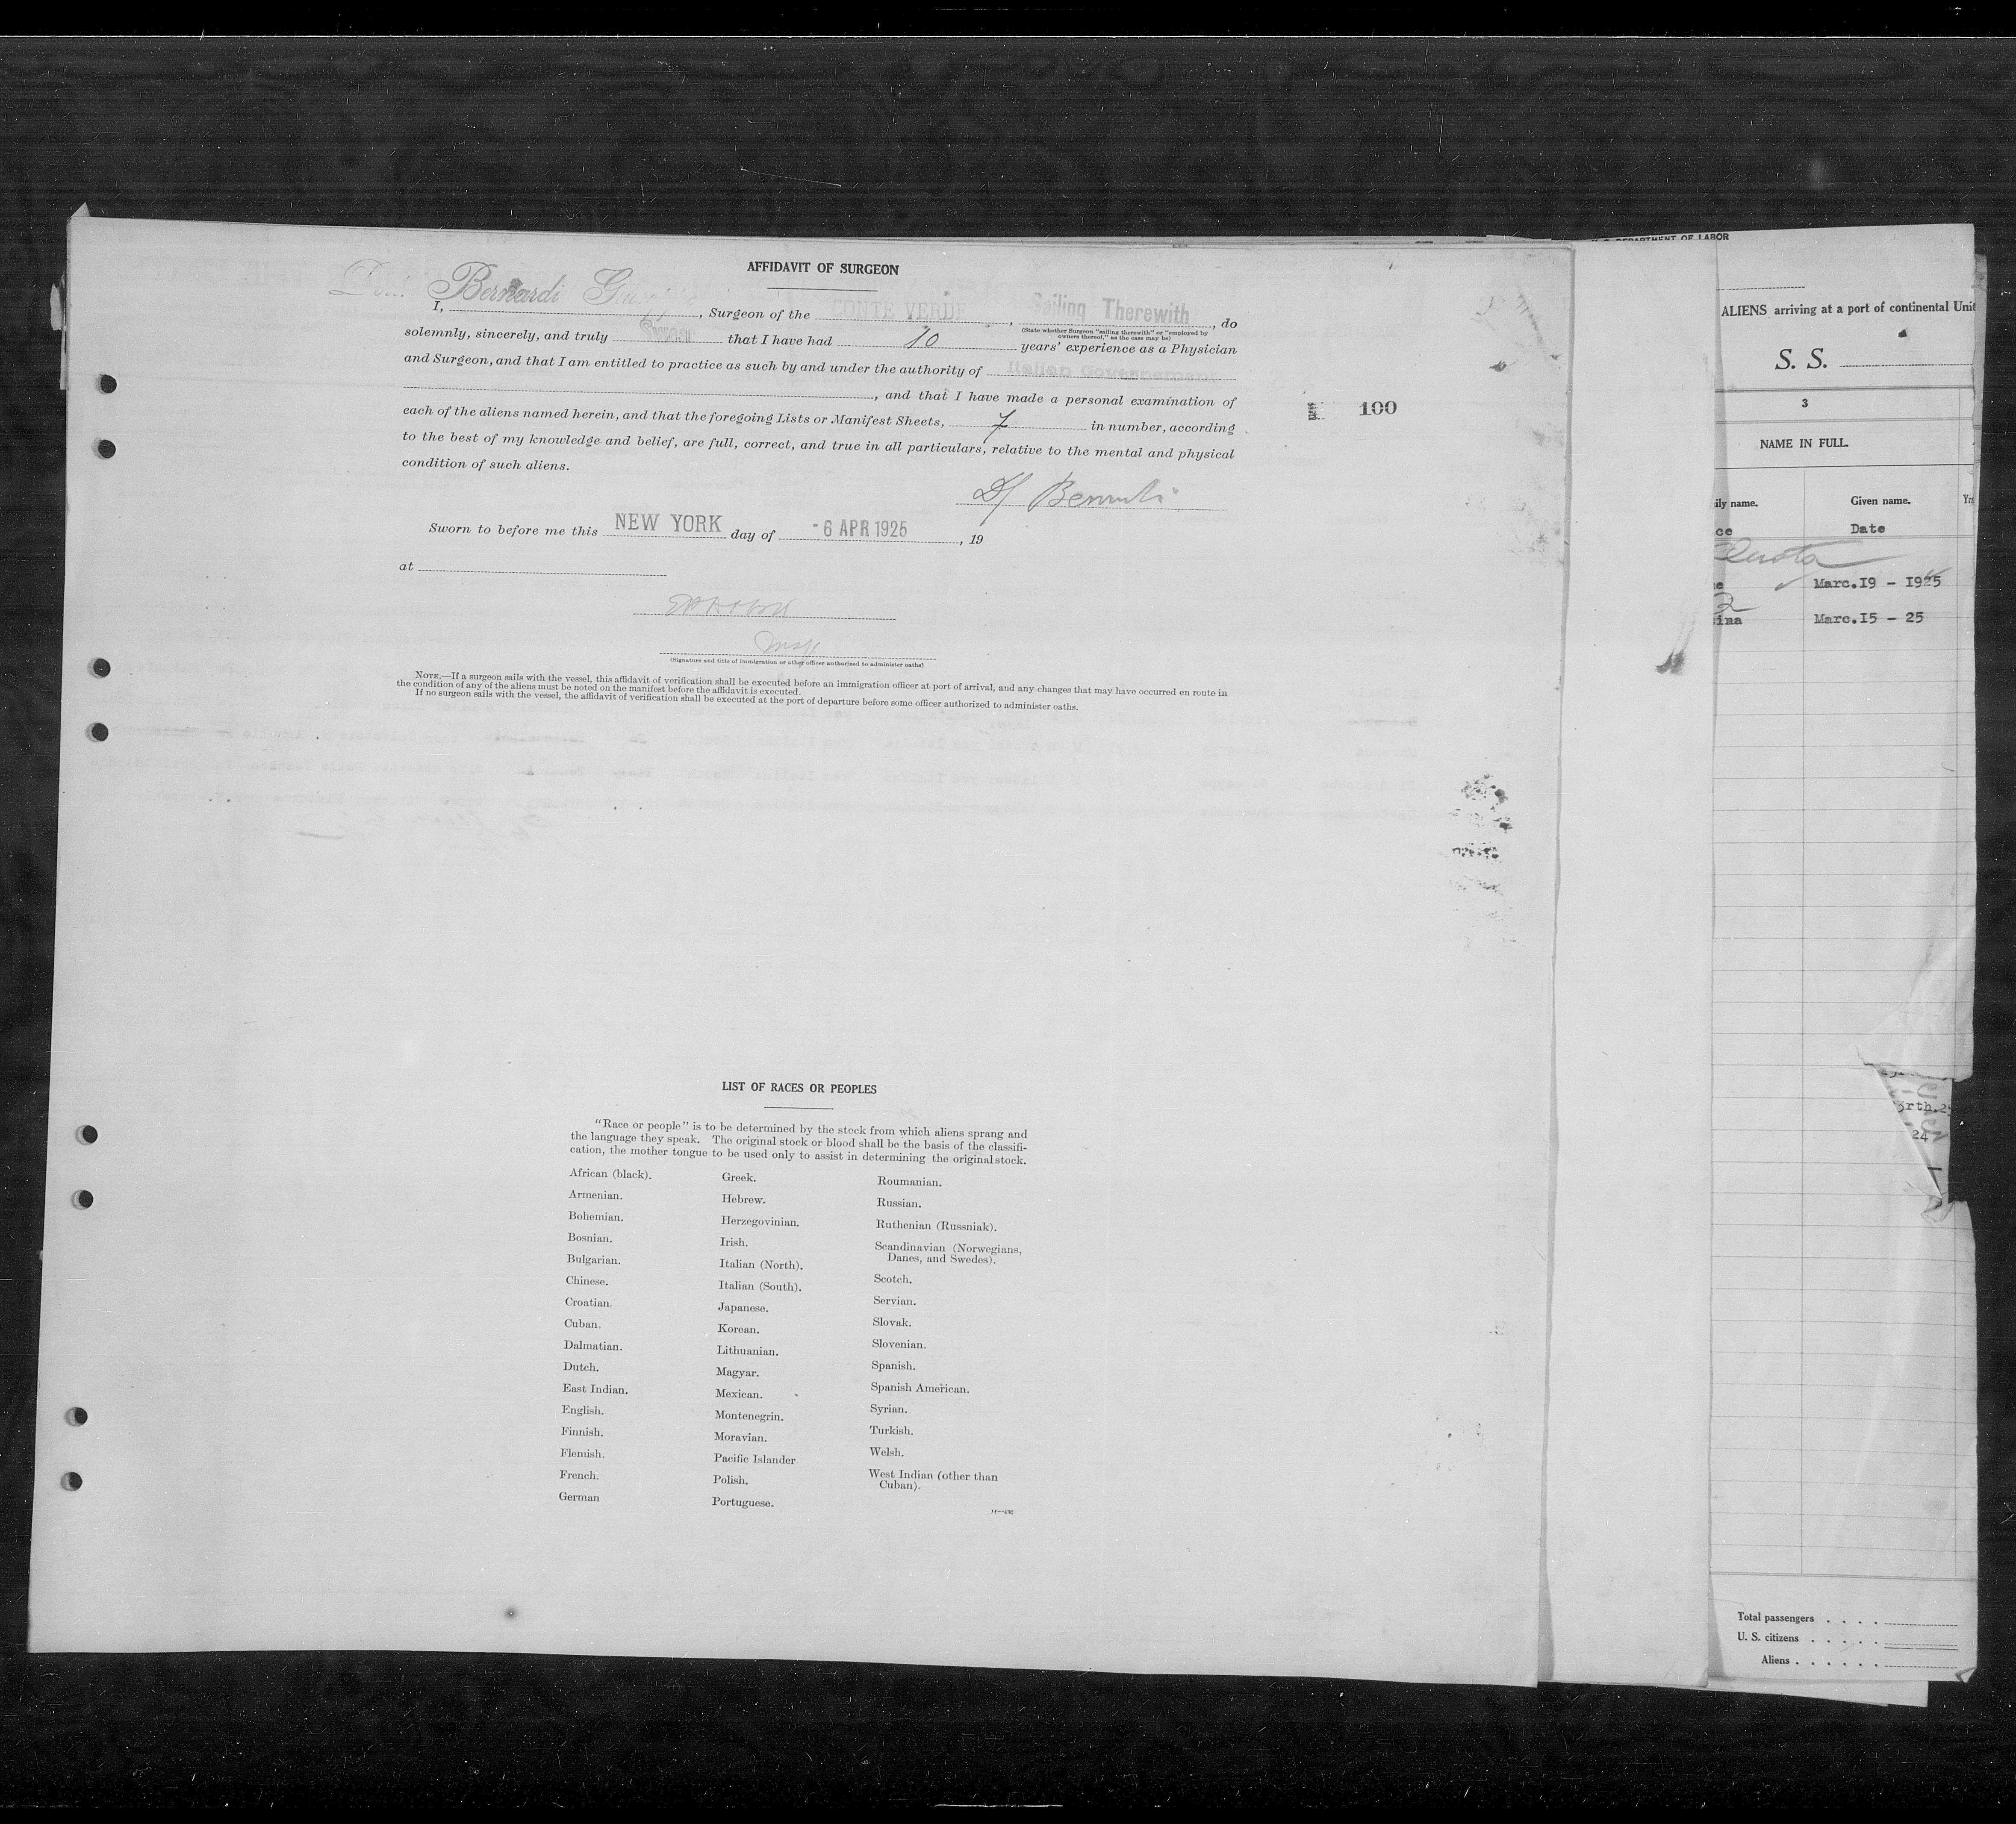 AFFIDAVIT OF SURGEON
I, Bernardi, Surgeon of the CONTE VERDE, Sailing Therewith, do
(State whether Surgeon "sailing therewith" or "employed by
owners thereof," as the case may be)
solemnly, sincerely, and truly Swear that I have had 10 years' experience as a Physician
and Surgeon, and that I am entitled to practice as such by and under the authority of Italian Government
, and that I have made a personal examination of
each of the aliens named herein, and that the foregoing Lists or Manifest Sheets, 7 in number, according
to the best of my knowledge and belief, are full, correct, and true in all particulars, relative to the mental and physical
condition of such aliens.
100
Sworn to before me this NEW YORK day of -6 APR 1925, 19
at
Insp
(Signature and title of immigration or other officer authorized to administer oaths)
NOTE.—If a surgeon sails with the vessel, this affidavit of verification shall be executed before an immigration officer at port of arrival, and any changes that may have occurred en route in
the condition of any of the aliens must be noted on the manifest before the affidavit is executed.
If no surgeon sails with the vessel, the affidavit of verification shall be executed at the port of departure before some officer authorized to administer oaths.
LIST OF RACES OR PEOPLES
"Race or people" is to be determined by the stock from which aliens sprang and
the language they speak. The original stock or blood shall be the basis of the classifi-
cation, the mother tongue to be used only to assist in determining the original stock.
African (black).
Armenian.
Bohemian.
Bosnian.
Bulgarian.
Chinese.
Croatian.
Cuban.
Dalmatian.
Dutch.
East Indian.
English.
Finnish.
Flemish.
French.
German
Greek.
Hebrew.
Herzegovinian.
Irish.
Italian (North).
Italian (South).
Japanese.
Korean.
Lithuanian.
Magyar.
Mexican.
Montenegrin.
Moravian.
Pacific Islander
Polish.
Portuguese.
Roumanian.
Russian.
Ruthenian (Russniak).
Scandinavian (Norwegians,
Danes, and Swedes).
Scotch.
Servian.
Slovak.
Slovenian.
Spanish.
Spanish American.
Syrian.
Turkish.
Welsh.
West Indian (other than
Cuban).
DEPARTMENT OF LABOR
ALIENS arriving at a port of continental Unit
S. S.
3
NAME IN FULL.
ily name.
Given name.
Yrs
ce
Date
Marc.19 - 1925
ina
Marc.15 - 25
24
Total passengers
U. S. citizens
Aliens